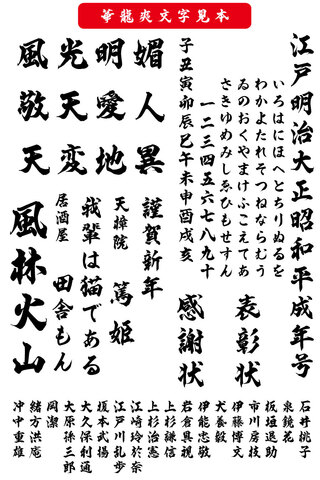 華龍爽文字見本
江戸明治大正昭和平成年号
いろはにほへとちりぬるを
わかよたれそつねならむう
ゐのおくやまけふこえてあ
さきゆめみしゑひもせすん
一二三四五六七八九十
子丑寅卯辰巳午未申酉戌亥
表彰状
感謝状
媚人異
明愛地
光天変
風敬天
謹賀新年
天樟院
篤姫
我輩は猫である
居酒屋
田舎もん
風林火山
石井桃子
泉鏡花
板垣退助
市川房枝
伊藤博文
犬養毅
伊能忠敬
岩倉具視
上杉謙信
上杉治憲
江崎玲於奈
江戸川乱歩
榎本武揚
大久保利通
大原孫三郎
岡潔
緒方洪庵
沖中重雄